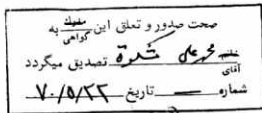 صحت صدور و تعلق این گواهی به
خانم آقای محمد علی شکوة تصدیق میگردد
شماره — تاریخ ۷۰/۵/۲۲